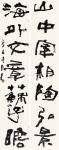 山中宰相陶弘景
海外文章蘇子瞻